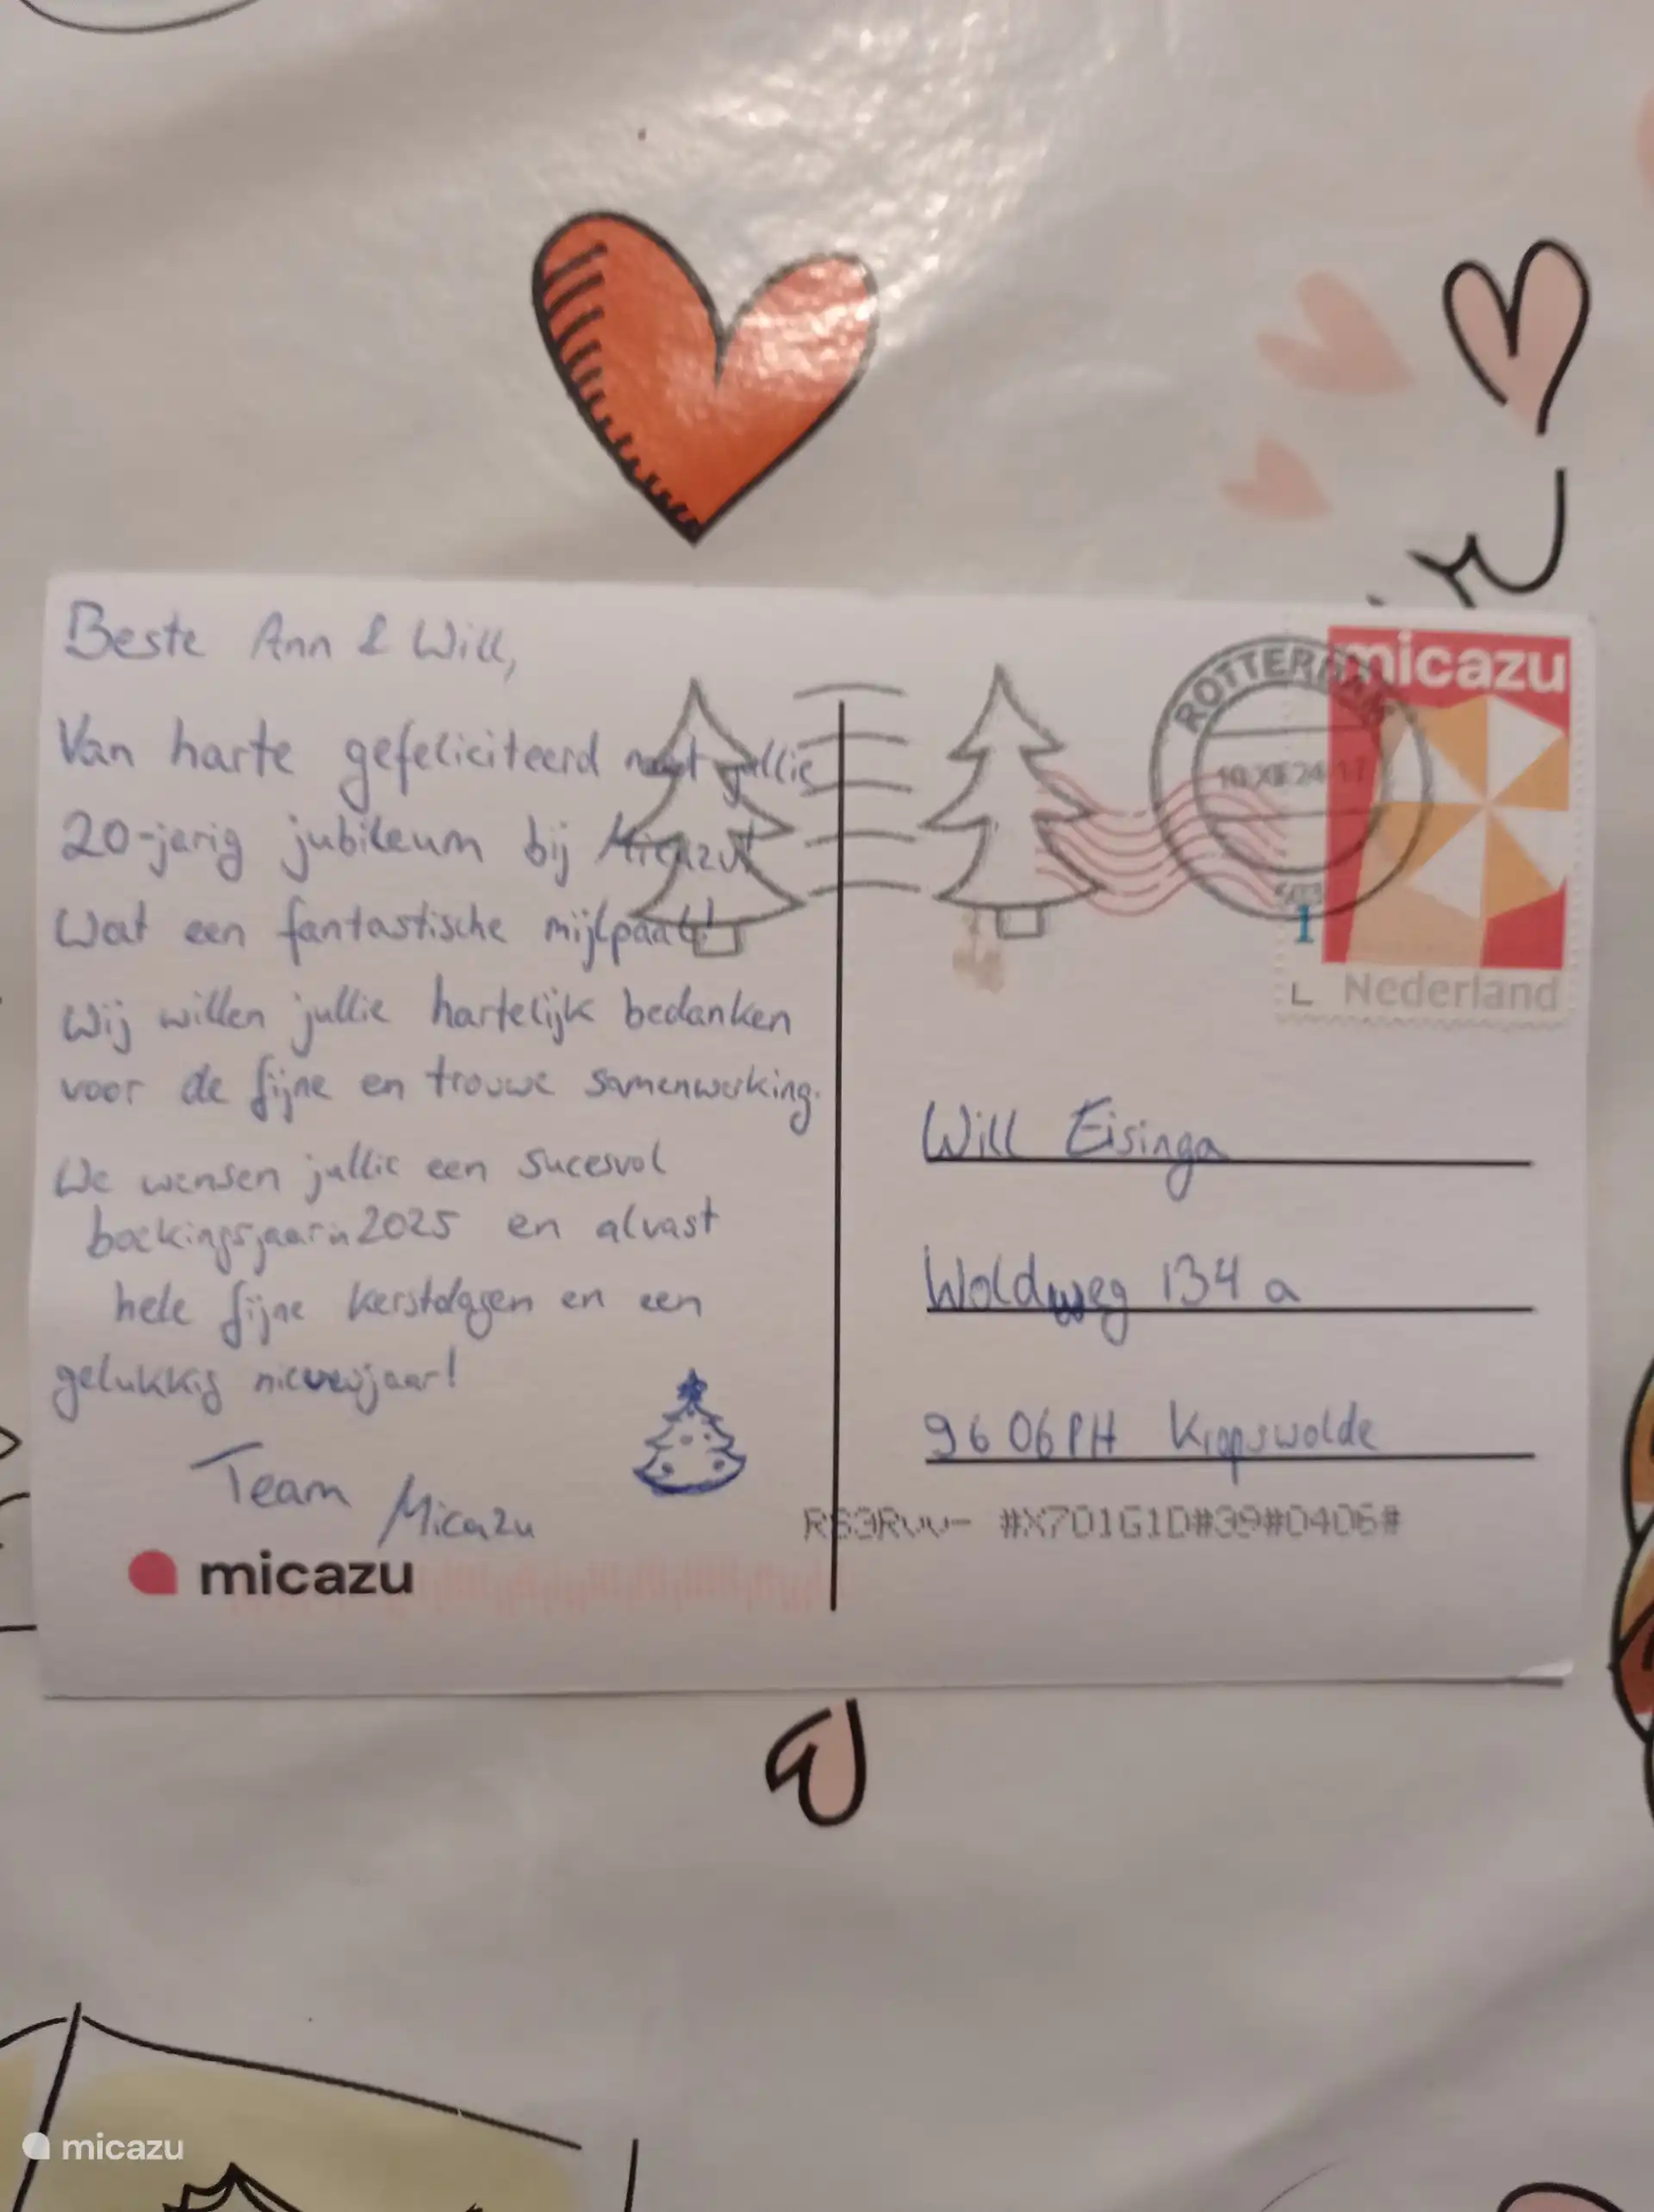 Beste Ann & Will,
Van harte gefeliciteerd met jullie
20-jarig jubileum bij Micazu!
Wat een fantastische mijlpaal!
Wij willen jullie hartelijk bedanken
voor de fijne en trouwe samenwerking.
We wensen jullie een sucesvol
boekingsjaar in 2025 en alvast
hele fijne kerstdagen en een
gelukkig nieuwjaar!
Team Micazu
micazu
ROTTERDAM
10 XII 24 17
micazu
1
Nederland
Will Eisinga
Woldweg 134 a
9606PH Kropswolde
#X701G1D#39#0406#
micazu